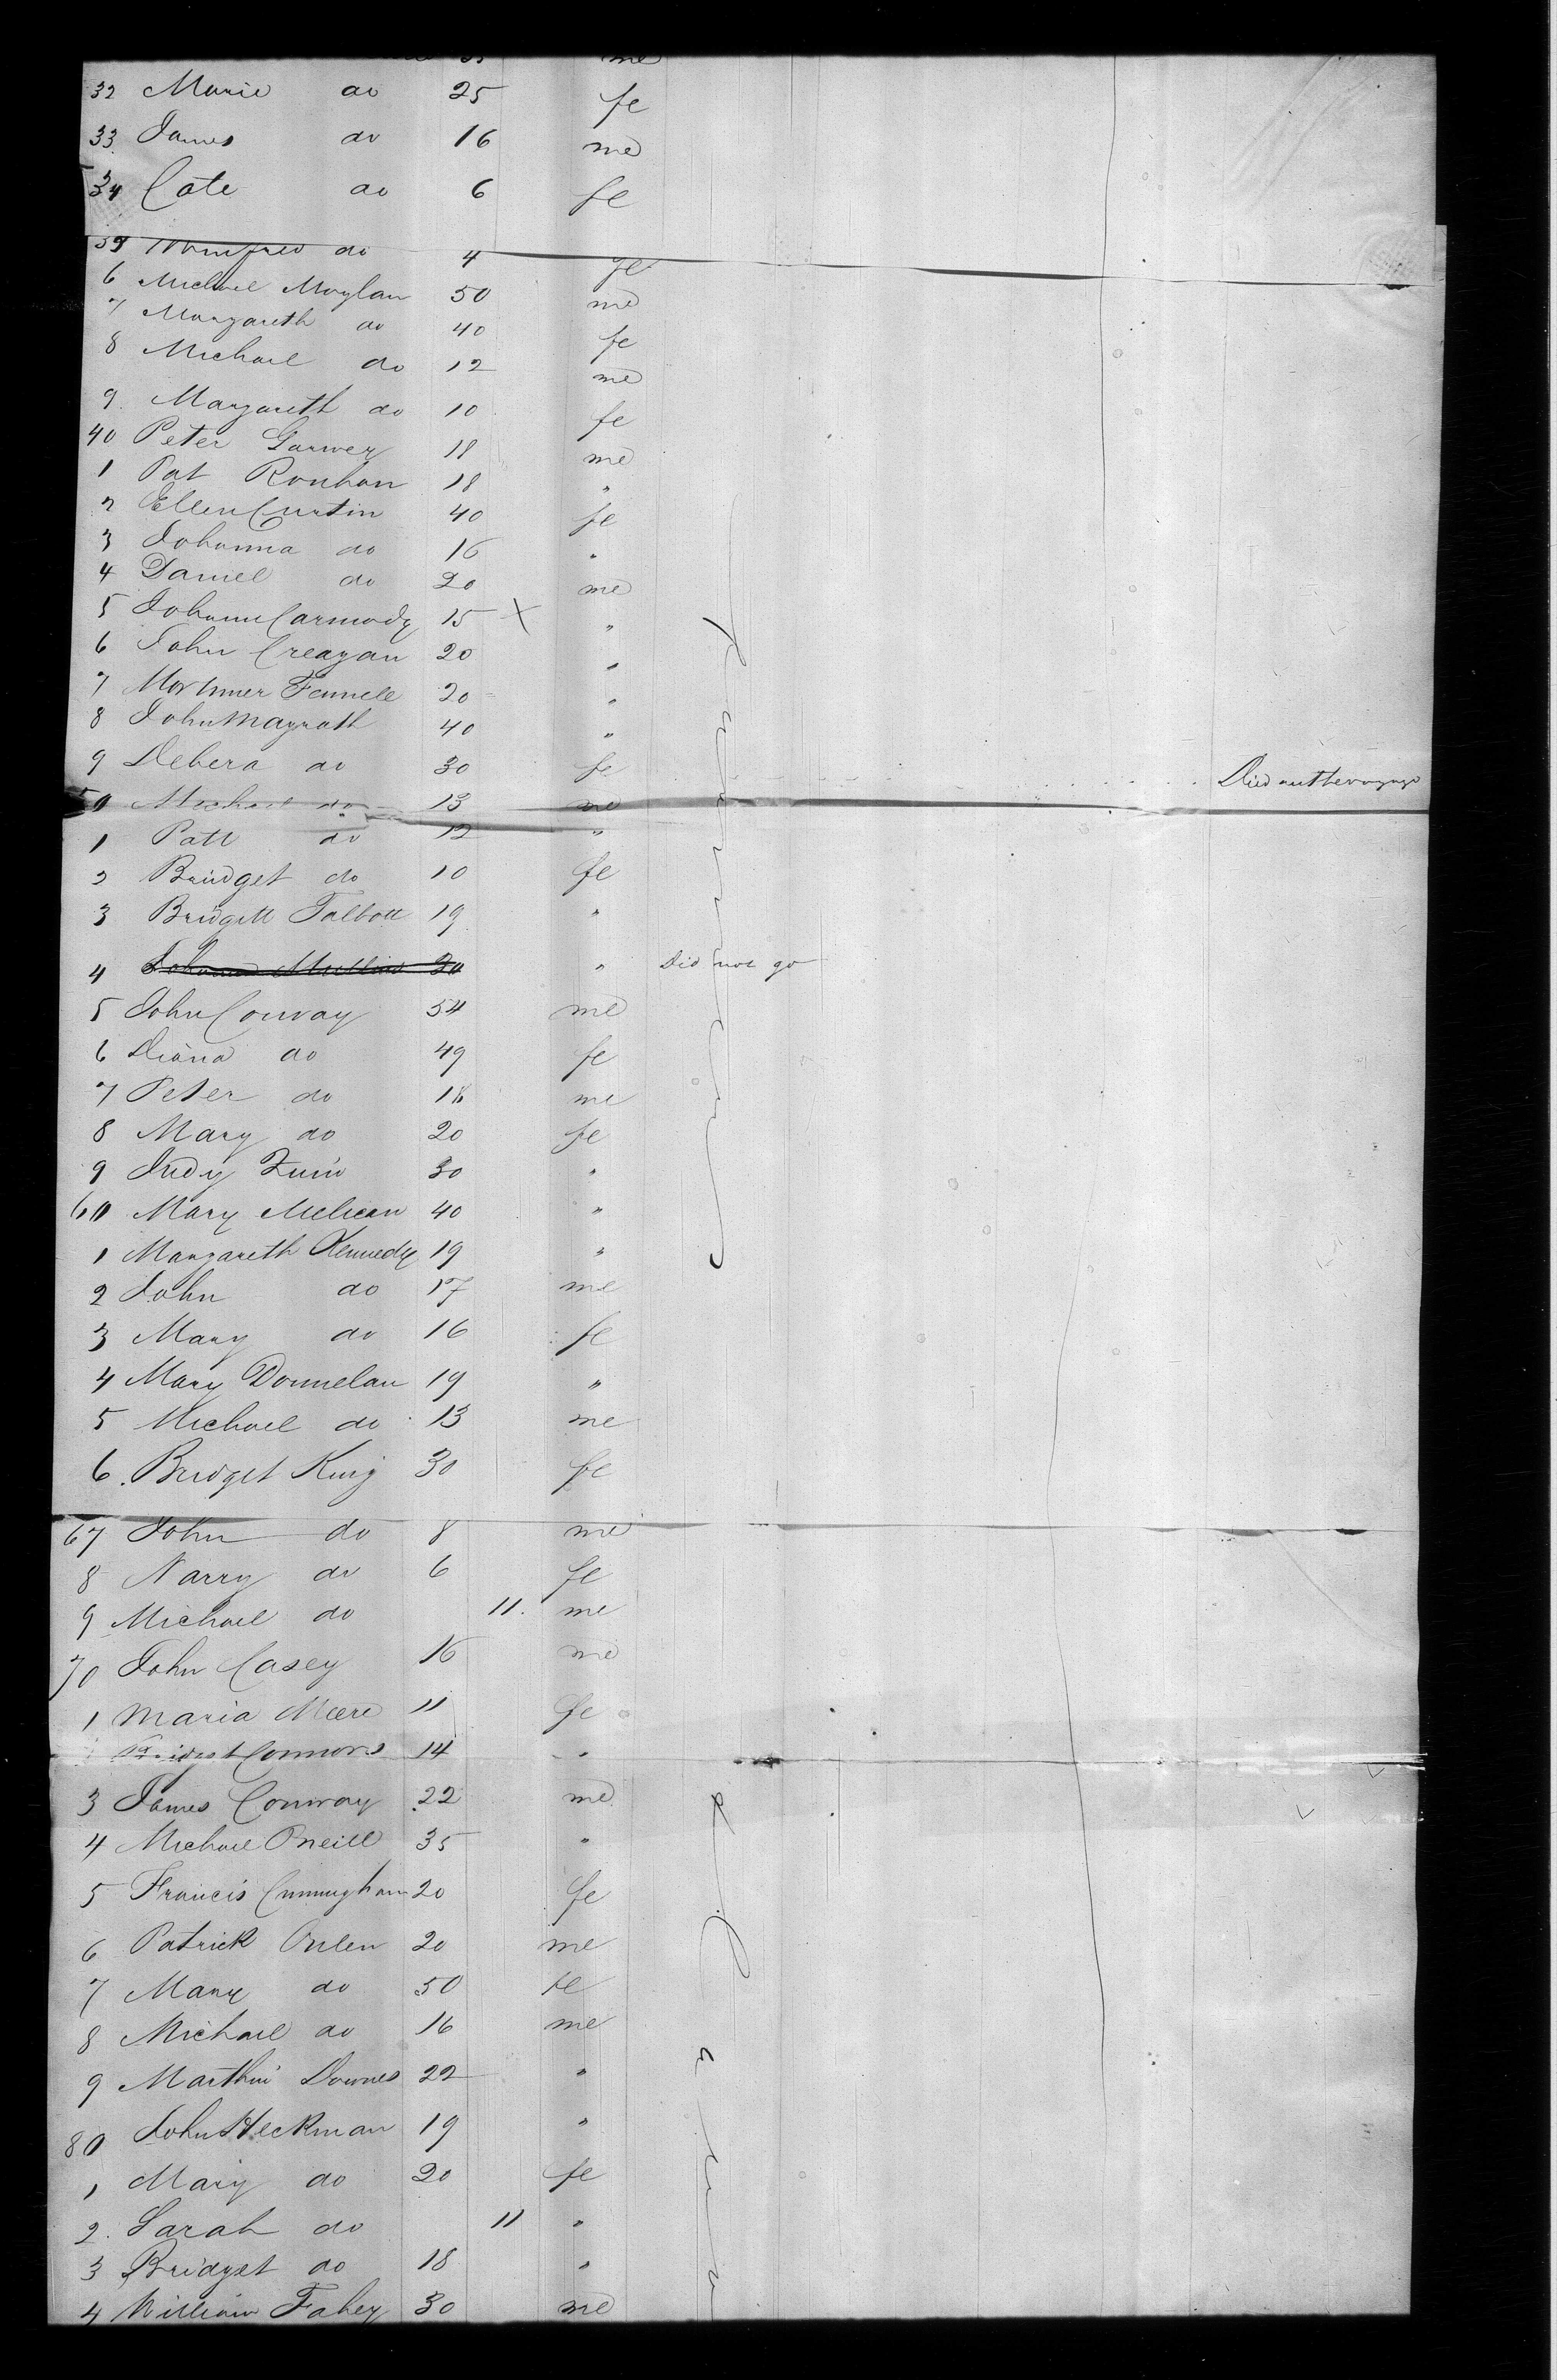 32 Marie do 25 fe
33 James do 16 me
34 Cate do 6 fe
35 Winifred do 4 fe
6 Michael Moylan 50 me
7 Margareth do 40 fe
8 Michael do 12 me
9 Margareth do 10 fe
40 Peter Garvey 18 me
1 Pat Rouhan 18 "
2 Ellen Curtin 40 fe
3 Johanna do 16 "
4 Daniel do 20 me
5 Johann Carmody 15 X "
6 John Creagan 20 "
7 Mortimer Fennell 20 "
8 John Magrath 40 "
9 Debera do 30 fe Died on the voyage
50 Michael do 13 me
1 Patt do 12 "
2 Bridget do 10 fe
3 Bridgett Talbott 19 "
4 Johanna Mullins 20 " Did not go
5 John Conway 54 me
6 Diana do 49 fe
7 Peter do 18 me
8 Mary do 20 fe
9 Judy 30 "
60 Mary Melican 40 "
1 Margareth Kennedy 19 "
2 John do 17 me
3 Mary do 16 fe
4 Mary Donnelan 19 "
5 Michael do 13 me
6 Bridget King 30 fe
67 John do 8 me
8 Narry do 6 fe
9 Michael do 11. me
70 John Casey 16 me
1 Maria Meere 11 fe
Bridget Connors 14 "
3 James Conway 22 me
4 Michael Oneill 35 "
5 Francis Cunningham 20 fe
6 Patrick 20 me
7 Mary do 50 fe
8 Michael do 16 me
9 Marthin Downes 22 "
80 John Heckman 19 "
1 Mary do 20 fe
2. Sarah do 11 "
3 Bridget do 18 "
4 William Fahey 30 me